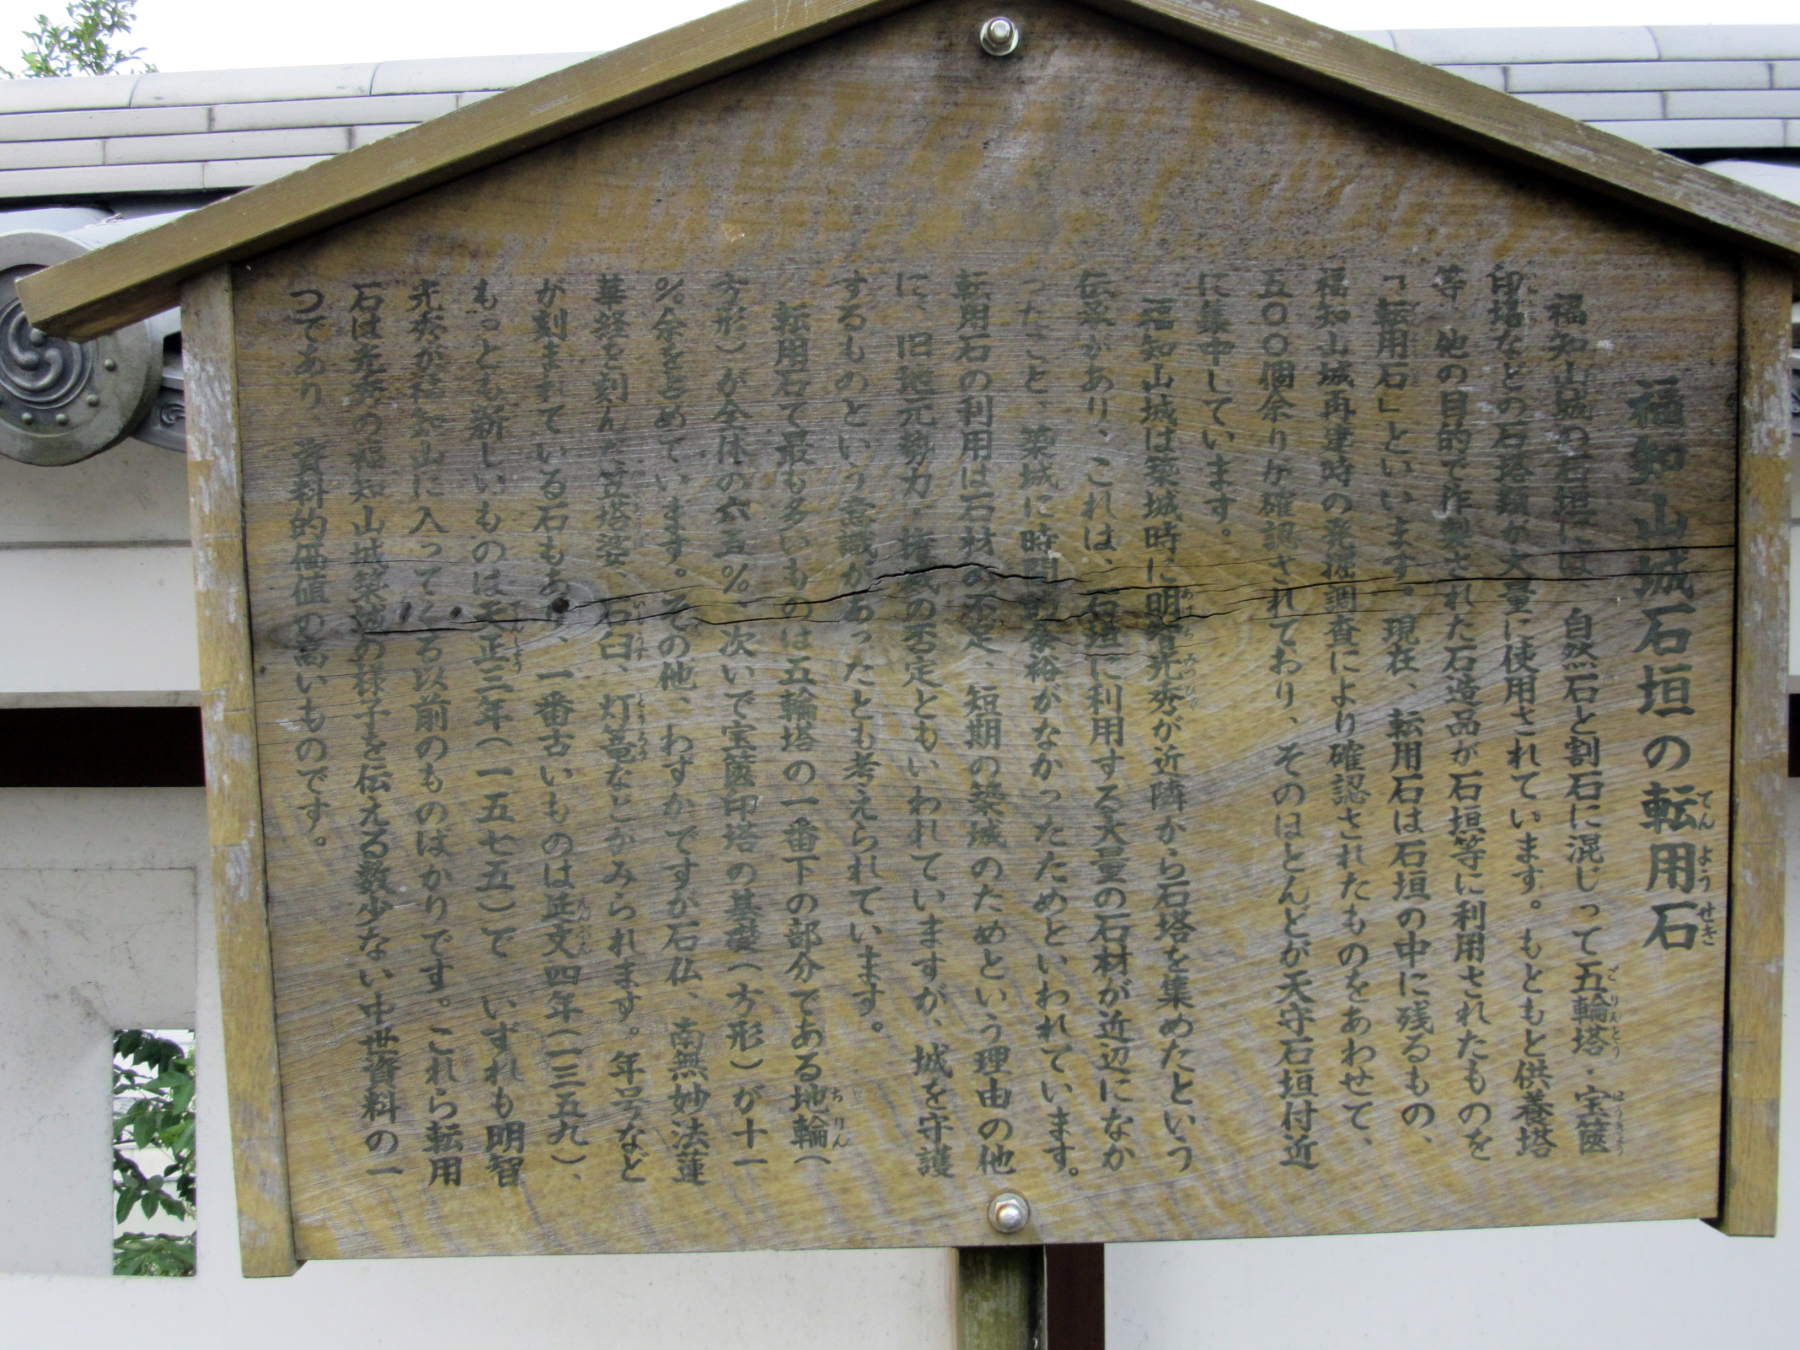 福知山城石垣の転用石
福知山城の石垣には、自然石と割石に混じって五輪塔・宝篋
印塔などの石塔類が大量に使用されています。もともと供養塔
等、他の目的で作製された石造品が石垣等に利用されたものを
「転用石」といいます。現在、転用石は石垣の中に残るもの、
福知山城再建時の発掘調査により確認されたものをあわせて、
五〇〇個余りが確認されており、そのほとんどが天守石垣付近
に集中しています。
福知山城は築城時に明智光秀が近隣から石塔を集めたという
伝承があり、これは、石垣に利用する大量の石材が近辺になか
ったこと、築城に時間的余裕がなかったためといわれています。
転用石の利用は石材の不足、短期の築城のためという理由の他
に、旧地元勢力、権威の否定ともいわれていますが、城を守護
するものという意識があったとも考えられています。
転用石で最も多いものは五輪塔の一番下の部分である地輪（
方形）が全体の六五％、次いで宝篋印塔の基礎（方形）が十一
％余を占めています。その他、わずかですが石仏、南無妙法蓮
華経を刻んだ笠塔婆、石臼、灯篭などがみられます。年号など
が刻まれている石もあり、一番古いものは延文四年（一三五九）、
もっとも新しいものは天正三年（一五七五）で、いずれも明智
光秀が福知山に入ってくる以前のものばかりです。これら転用
石は光秀の福知山城築城の様子を伝える数少ない中世資料の一
つであり、資料的価値の高いものです。